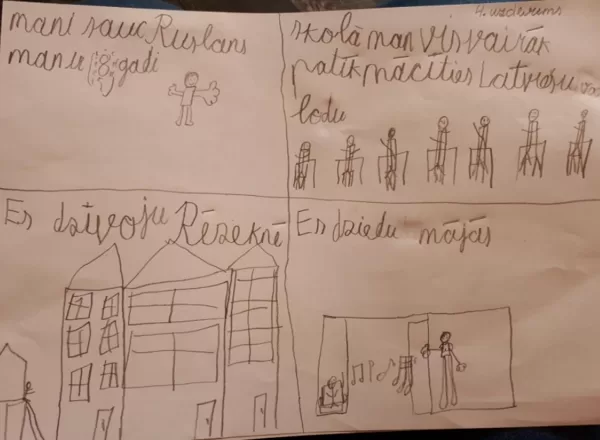 4. uzdevums
mani sauc Ruslans
man ir 8 gadi
skolā man visvairāk
patīk mācīties Latviešu va
lodu
Es dzīvoju Rēzeknē
Es dziedu mājās